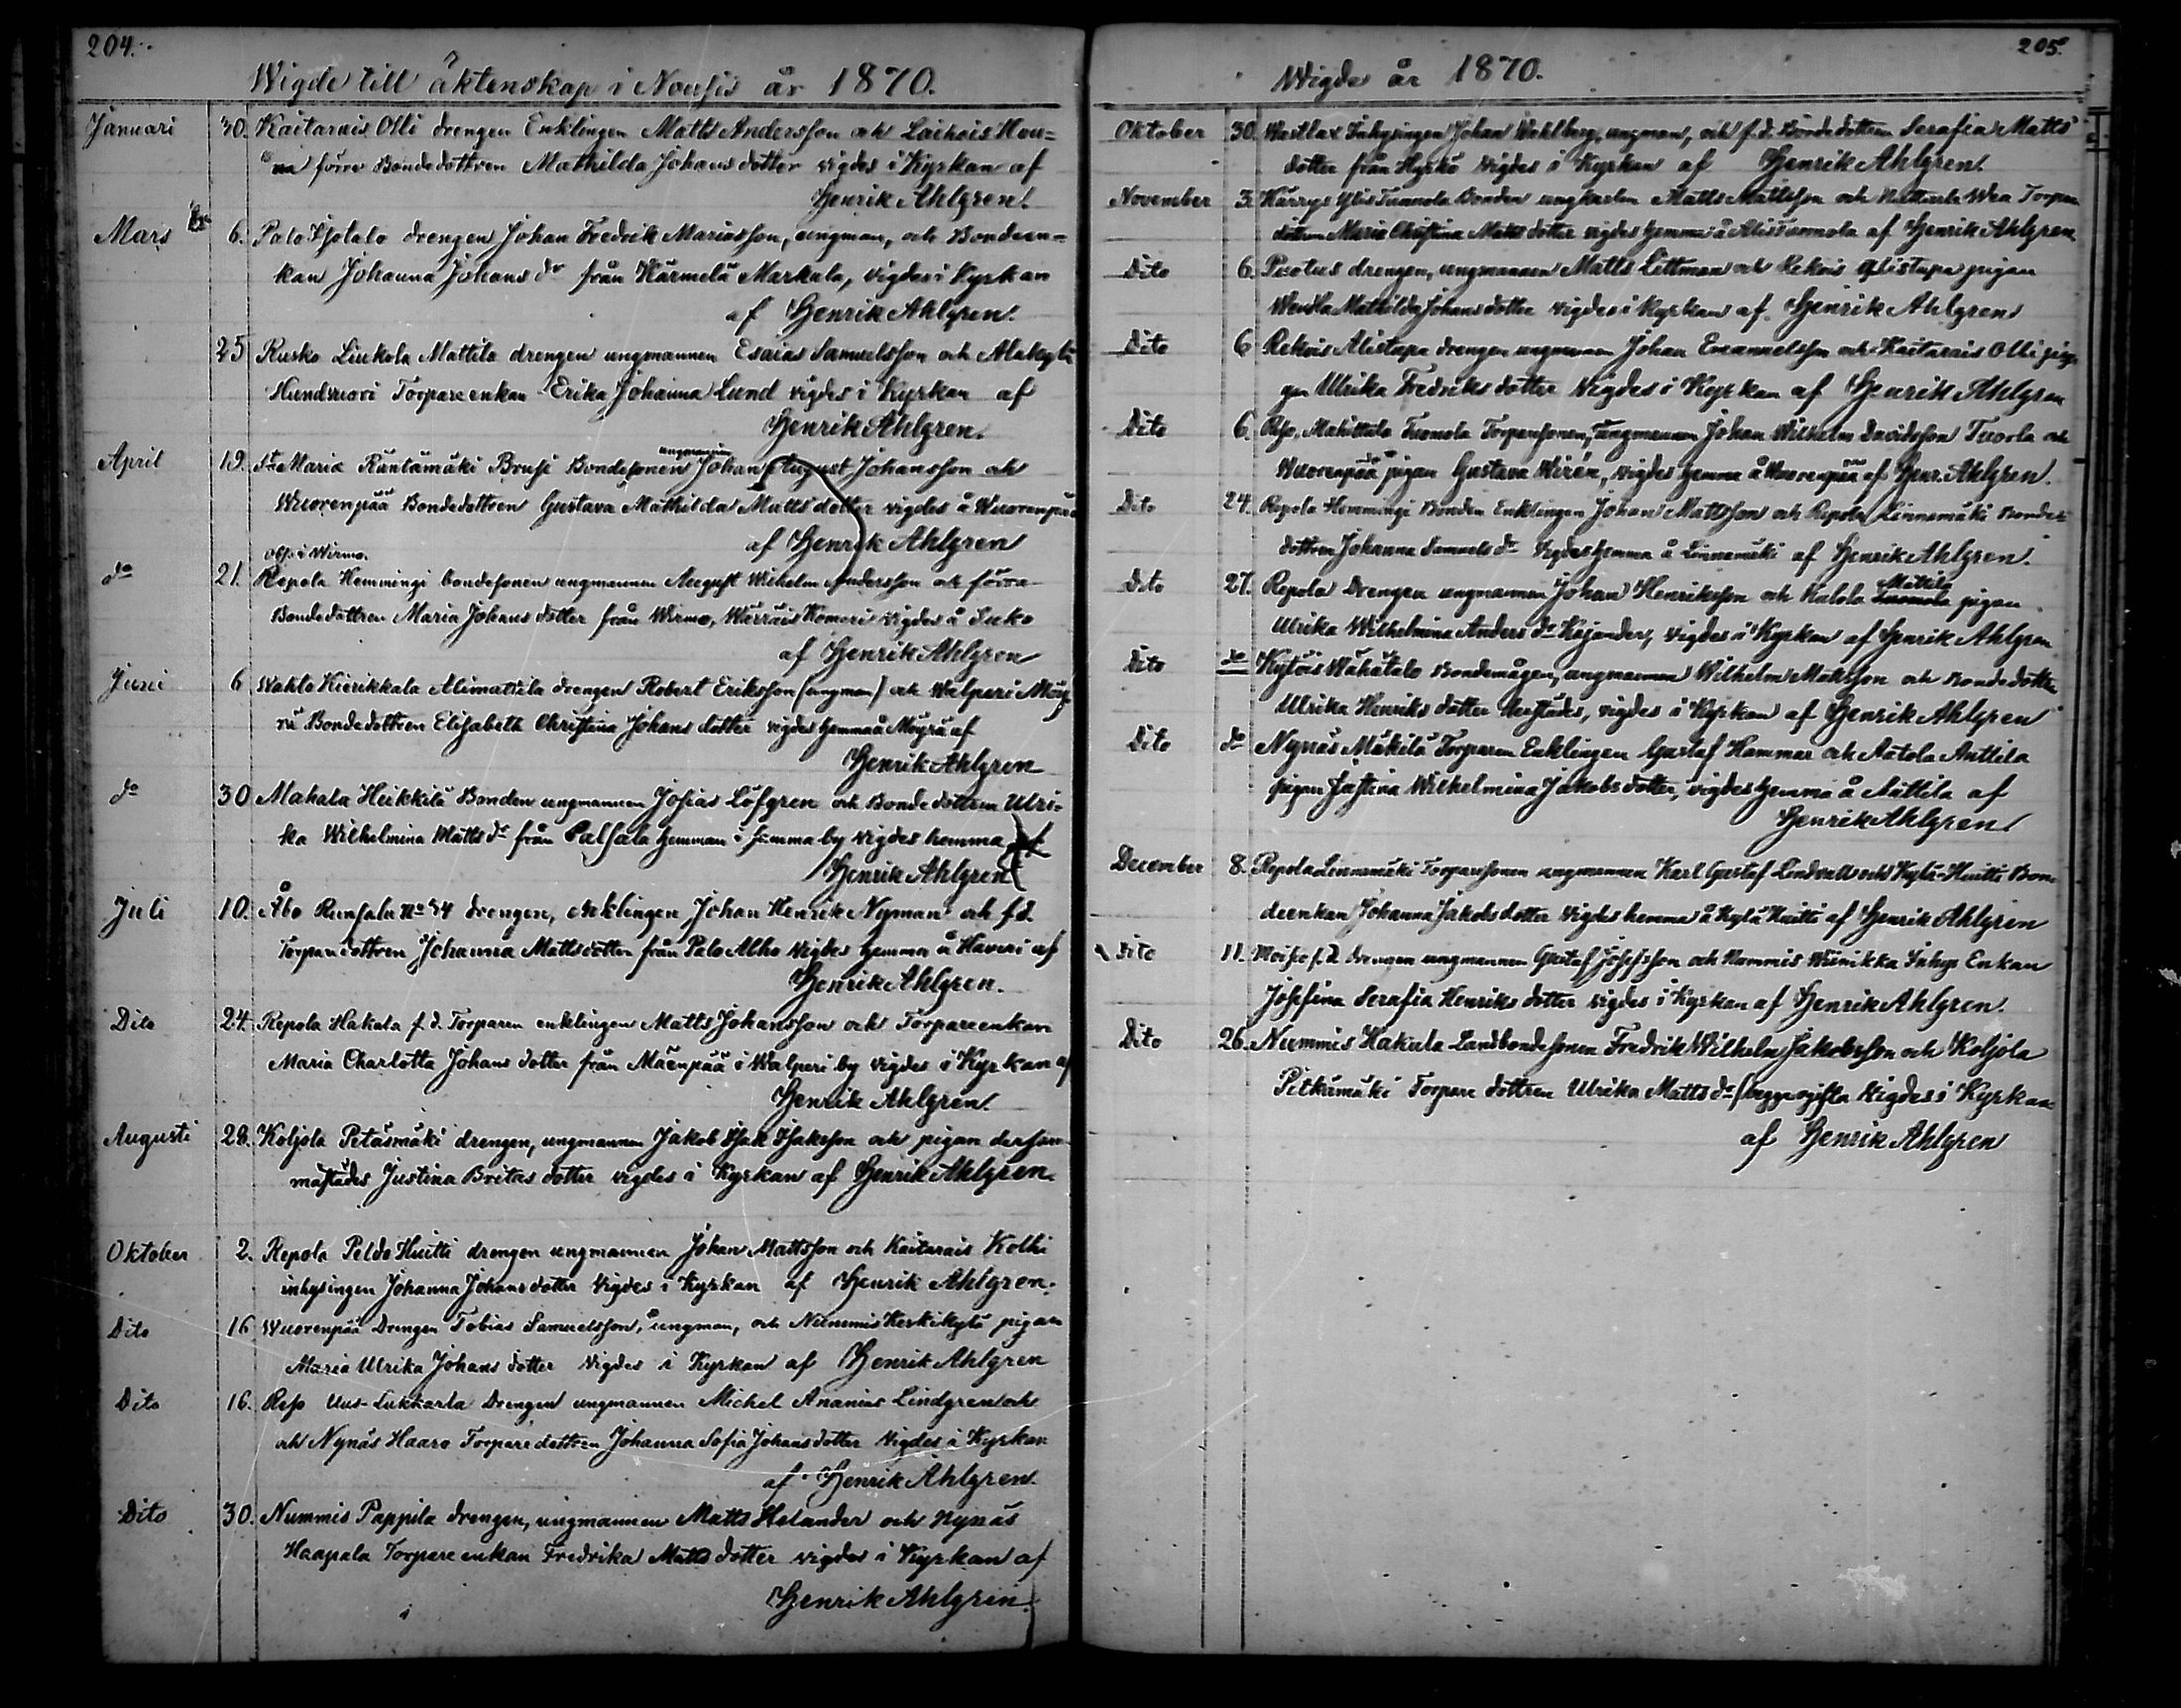 204.
Wigde till äktenskap i Nousis år 1870.
Januari 30. Kaitarais Olli drengen Enklingen Matts Andersson och Laihois Hou-
na förre Bondedottren Mathilda Johansdotter vigdes i Kyrkan af
Henrik Ahlgren.
Mars 6. Palo Isotalo drengen Johan Fredrik Mariasson, ungman, och Bondeen-
kan Johanna Johans dr från Kärmelä Markula, vigdes i Kyrkan
af Henrik Ahlgren.
25 Rusko Liukola Mattila drengen ungmannen Esaias Samuelsson och Alakylä
Hundvuori Torpareenkan Erika Johanna Lund vigdes i Kyrkan af
Henrik Ahlgren.
ungmannen
April 19. St Marie Räntämäki Brusi Bondesonen Johan August Johansson och
Wuorenpää Bondedottren Gustava Mathilda Matts dotter vigdes å Wuorenpää
af Henrik Ahlgren
i Wirmo.
do 21. Repola Hemmingi bondesonen ungmannen August Wilhelm Andersson och förra
Bondedottren Maria Johans dotter från Wirmo, Wärräis Komeri vigdes å Luko
af Henrik Ahlgren
Juni 6 Wahto Kierikkala Alimattila drengen Robert Eriksson (ungman) och Walperi Moy-
rü Bondedottren Elisabeth Christina Johans dotter vigdes hemma å Moyrü af
Henrik Ahlgren
do 30 Mahala Heikkilä Bonden ungmannen Josias Löfgren och Bondedottren Ulri-
ka Wilhelmina Matts dr från Palsala hemman i samma by vigdes hemma af
Henrik Ahlgren
Juli 10. Åbo Runsala No 44 drengen, enklingen Johan Henrik Nyman och f.d.
Torparedottren Johanna Mattsdotter från Palo Alho vigdes hemma å Haveri af
Henrik Ahlgren.
Dito 24. Repola Hakala f.d. Torparen enklingen Matts Johansson och Torpareenkan
Maria Charlotta Johans dotter från Mäenpää i Walperi by vigdes i Kyrkan af
Henrik Ahlgren.
Augusti 28. Koljola Petäsmäki drengen, ungmannen Jakob Isak Isaksson och pigan dersam-
mastädes Justina Britas dotter vigdes i Kyrkan af Henrik Ahlgren.
Oktober 2. Repola Peldo Huitti drengen ungmannen Johan Mattsson och Kaitarais Kolhi
inhysingen Johanna Johansdotter vigdes i Kyrkan af Henrik Ahlgren.
Dito 16 Wuorenpää Drengen Tobias Samuelsson, ungman, och Nummis Keskikylä pigan
Maria Ulrika Johans dotter vigdes i Kyrkan af Henrik Ahlgren
Dito 16. Reso Uus-Lukkarla Drengen ungmannen Michel Ananias Lindgren och
och Nynäs Haaro Torparedottren Johanna Sofia Johansdotter vigdes i Kyrkan
af Henrik Ahlgren.
Dito 30. Nummis Pappila drengen, ungmannen Matts Helander och Nynäs
Haapala Torpareenkan Fredrika Matts dotter vigdes i Kyrkan af
Henrik Ahlgren.
205.
Wigde år 1870.
Oktober 30. Wastlax Inhysingen Johan Wahlberg, ungman, och f.d. Bondedottren Serafia Matts
dotter från Hyrkö vigdes i Kyrkan af Henrik Ahlgren.
November 3. Kärrys Ylis Tuomola Bonden ungkarlen Matts Mattsson och Torpare
dottren Maria Christina Matts dotter vigdes hemma å Alistuomola af Henrik Ahlgren
Dito 6. Puotus drengen, ungmannen Matts Littman och Rekois Alistupa pigan
Wendla Mathilda Johans dotter vigdes i Kyrkan af Henrik Ahlgren
Dito 6 Rekois Alistupa drengen ungmannen Johan Emanuelsson och Kaitarais Olli pi-
gan Ulrika Fredriks dotter vigdes i Kyrkan af Henrik Ahlgren
Dito 6. Reso, Mahittula Tuomola Torparesonen, ungmannen Johan Wilhelm Davidsson Tuorla och
Wuorenpää pigan Gustava Wirén, vigdes hemma å Wuorenpää af Henr. Ahlgren.
Dito 24. Repola Hemmingi Bonden Enklingen Johan Mattsson och Repola Linnamäki Bonde-
dottren Johanna Samuels dr vigdes hemma å Linnamäki af Henrik Ahlgren.
Mattila
Dito 27. Repola Drengen ungmannen Johan Henriksson och Kalela Tuomola pigan
Ulrika Wilhelmina Anders dr Kajander, vigdes i Kyrkan af Henrik Ahlgren
Dito do Kytöis Wähätalo Bondemågen, ungmannen Wilhelm Mattsson och Bondedottren
Ulrika Henriks dotter derstädes, vigdes i Kyrkan af Henrik Ahlgren
Dito do Nynäs Mäkilä Torparen Enklingen Gustaf Hammar och Aatola Anttila
pigan Justina Wilhelmina Jakobs dotter, vigdes hemma å Anttila af
Henrik Ahlgren
December 8. Repola Linnamäki Torparesonen ungmannen Karl Gustaf Lindvall och Kylä-Huitti Bon-
deenkan Johanna Jakobs dotter vigdes hemma å Kylä Huitti af Henrik Ahlgren
Dito 11. Moisio f.d. drengen ungmannen Gustaf Josefsson och Nummis Wiinikka Inhys Enkan
Josefina Serafia Henriks dotter vigdes i Kyrkan af Henrik Ahlgren.
Dito 26. Nummis Hakula Landbondesonen Fredrik Wilhelm Jakobsson och Koljola
Pitkämäki Torpare dottren Ulrika Matts dr (begge ogifta vigdes i Kyrkan
af Henrik Ahlgren